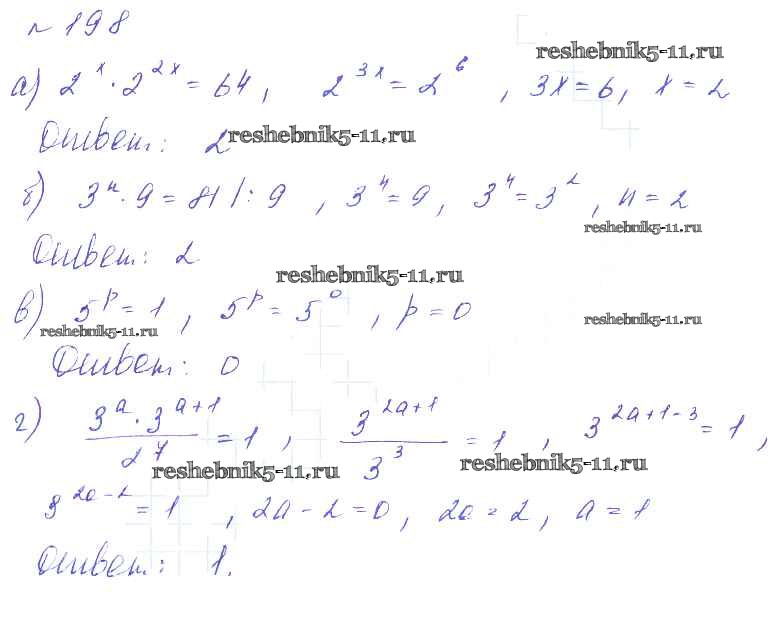 № 198
reshebnik5-11.ru
а) 2^x · 2^2x = 64, 2^3x = 2^6, 3x = 6, x = 2
Ответ: 2
reshebnik5-11.ru
б) 3^n · 9 = 81 |: 9, 3^n = 9, 3^n = 3^2, n = 2
reshebnik5-11.ru
Ответ: 2.
reshebnik5-11.ru
в) 5^p = 1, 5^p = 5^0, p = 0
reshebnik5-11.ru
reshebnik5-11.ru
Ответ: 0
г) (3^a · 3^(a+1))/27 = 1, 3^(2a+1)/3^3 = 1, 3^(2a+1-3) = 1,
reshebnik5-11.ru
reshebnik5-11.ru
3^(2a-2) = 1, 2a - 2 = 0, 2a = 2, a = 1
Ответ: 1.